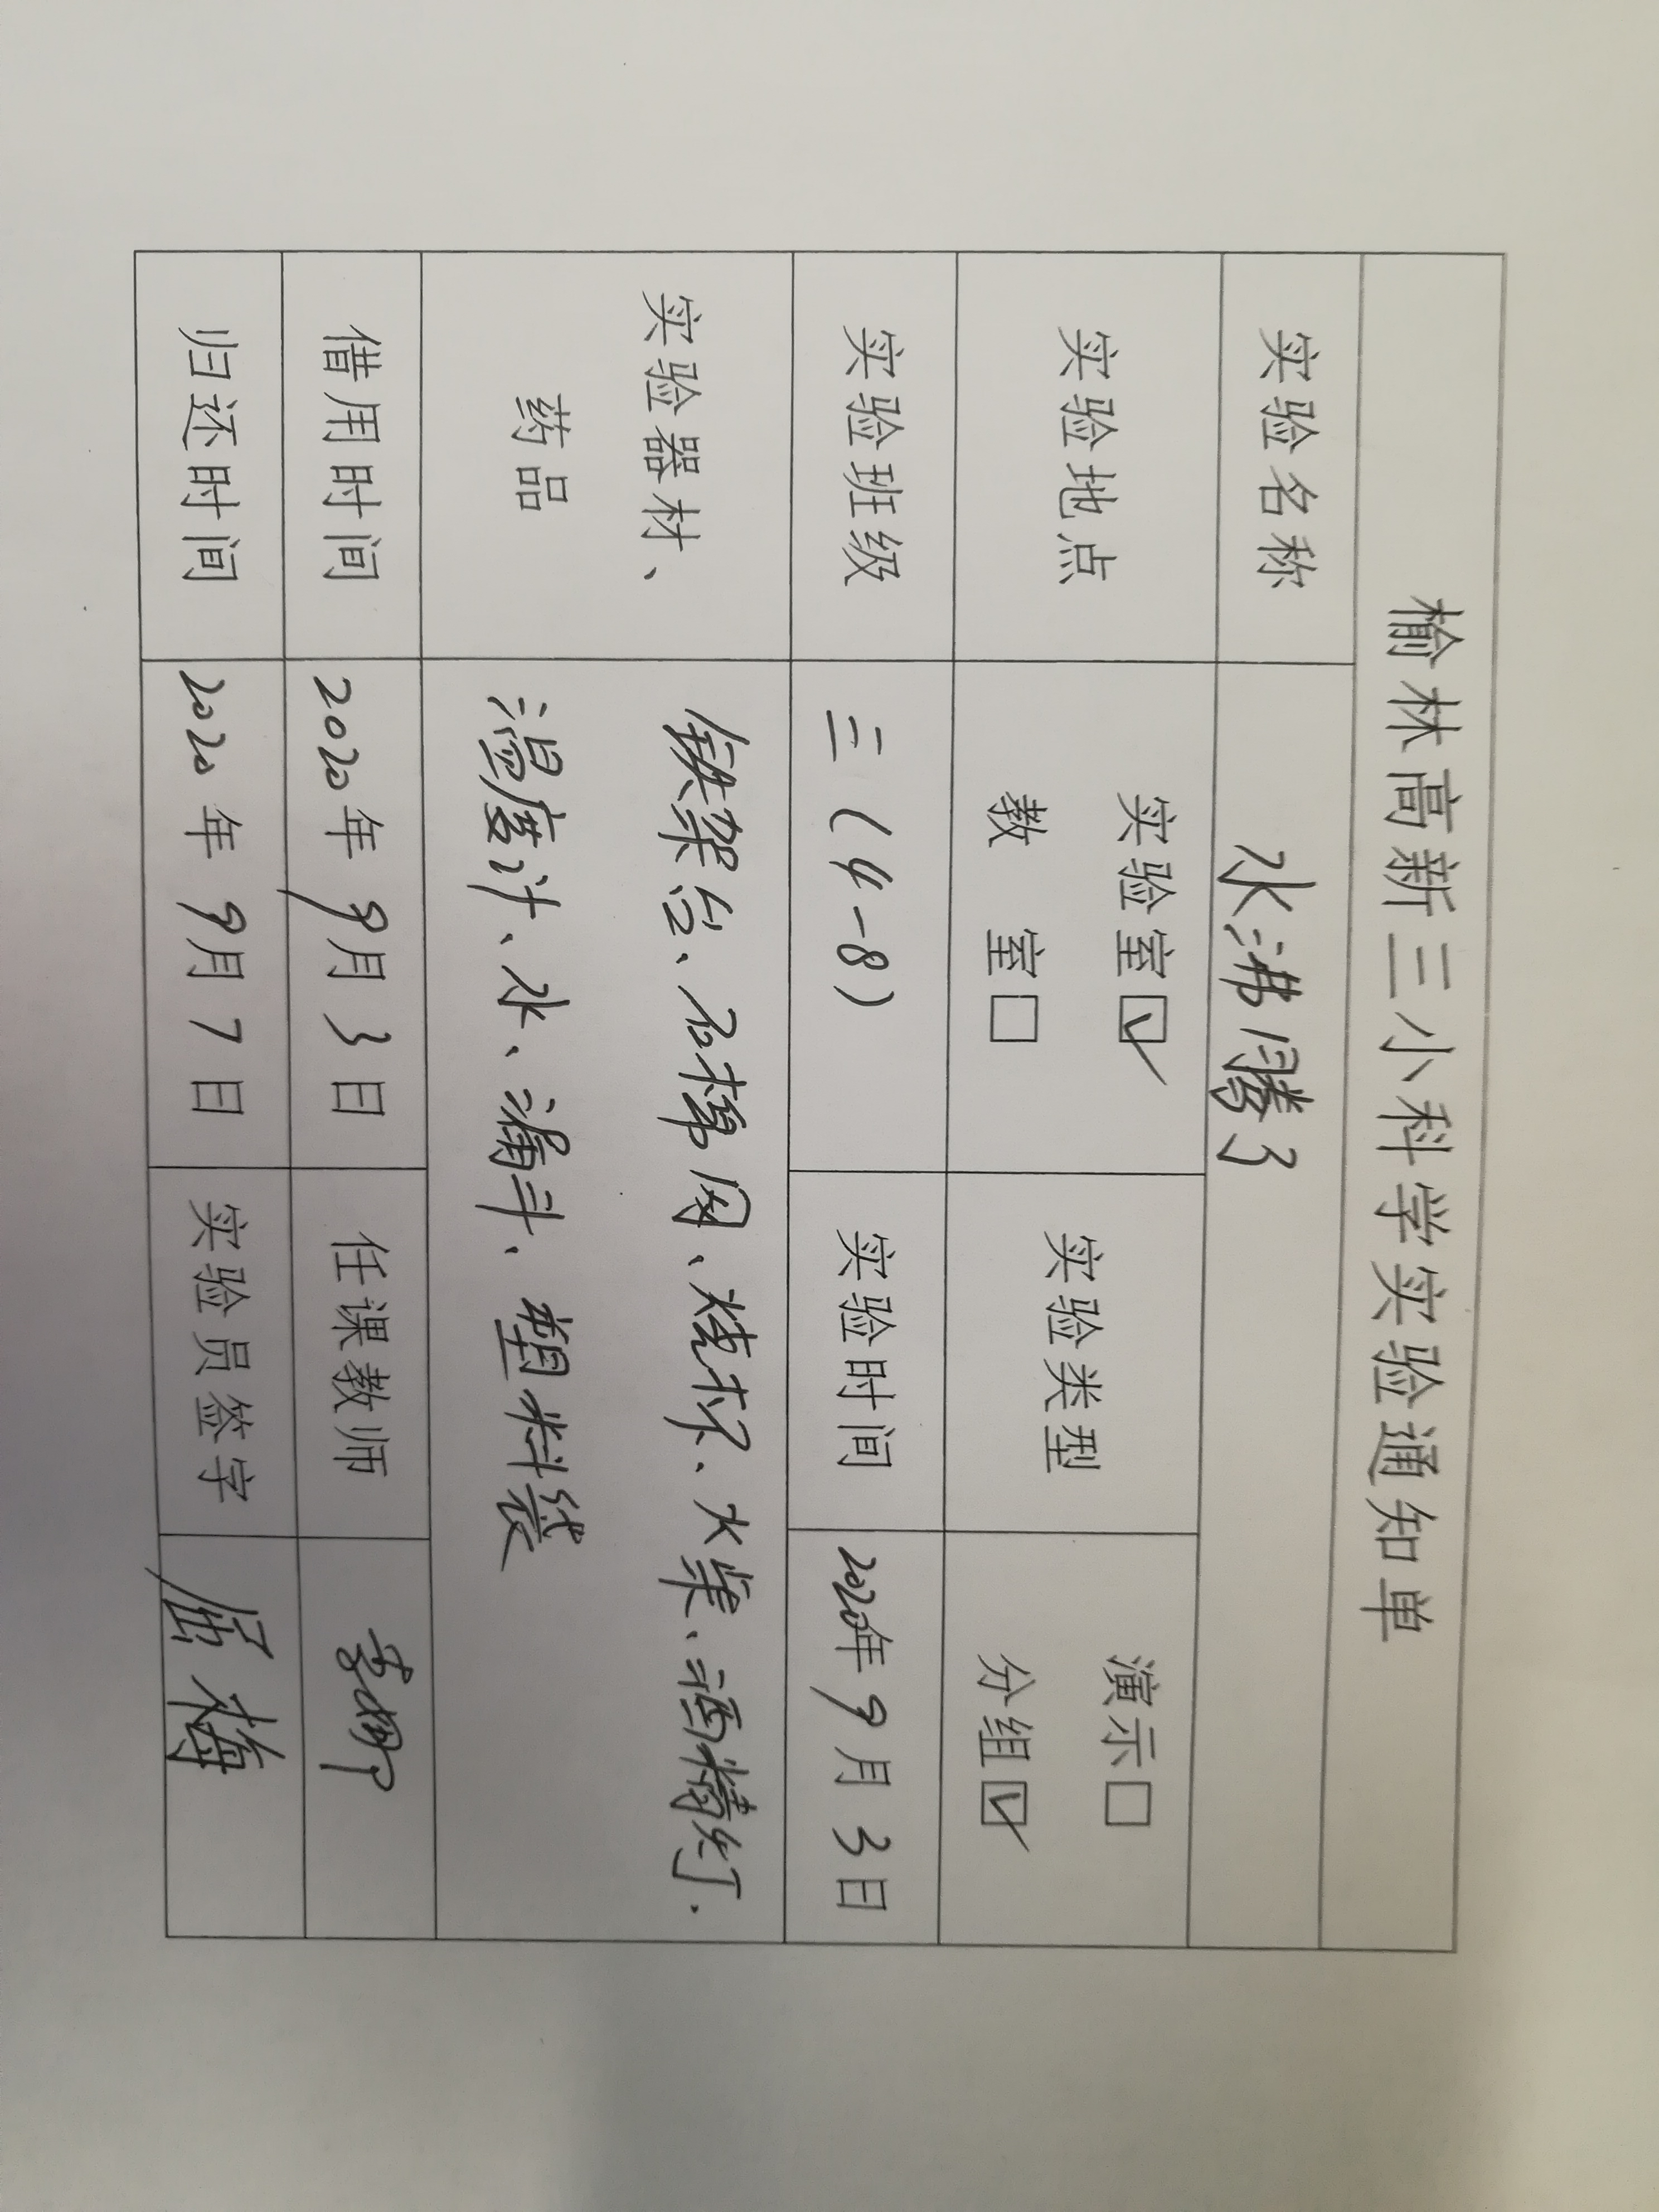 榆林高新三小科学实验通知单
实验名称 水沸腾了
实验地点 实验室☑ 教 室□ 实验类型 演示□ 分组☑
实验班级 三(4-8) 实验时间 2020年9月3日
实验器材、药品 铁架台、石棉网、烧杯、火柴、酒精灯.
温度计、水、漏斗、塑料袋
借用时间 2020年9月3日 任课教师
归还时间 2020年9月7日 实验员签字 屈梅